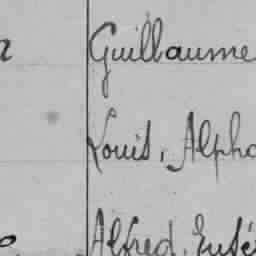 Guillaume
Louis, Alpho
Alfred, Eusé